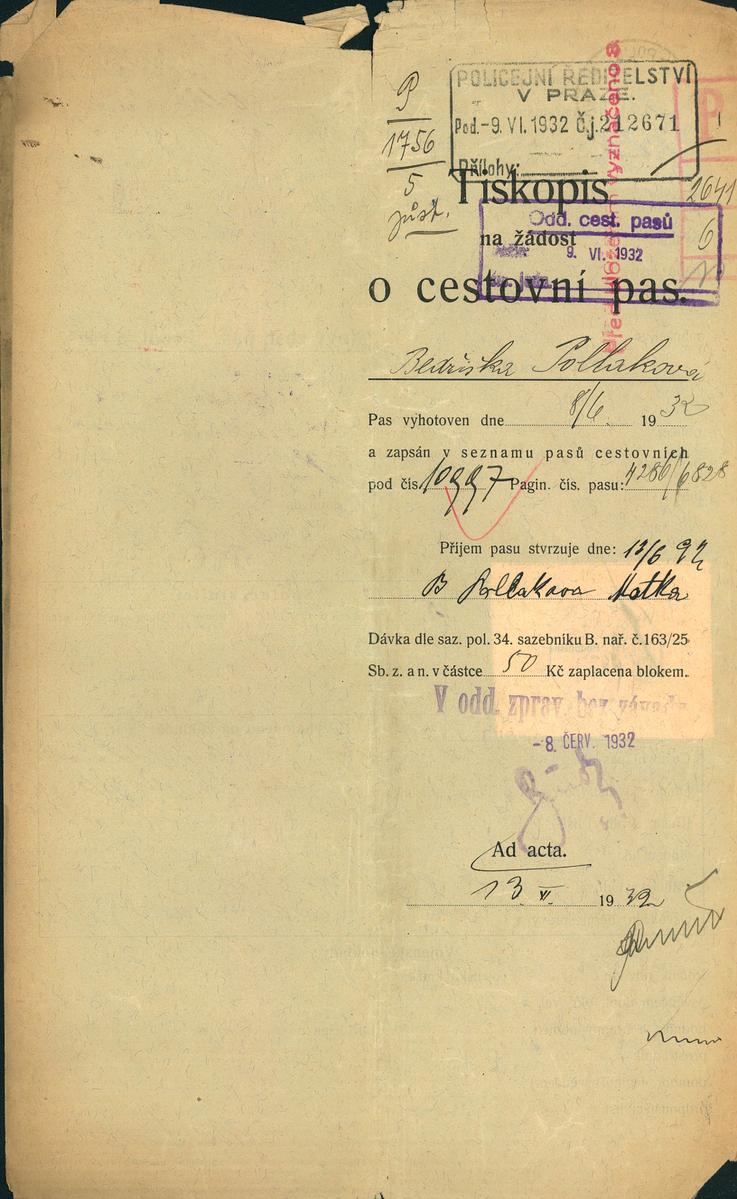 P
1756
5
POLICEJNÍ ŘEDITELSTVÍ
V PRAZE.
Pod. -9. VI. 1932 Č.j. 212671
Přílohy:
P
2641
6
Tiskopis
Odd. cest. pasů
na žádost
9. VI. 1932
o cestovní pas.
Bedřiška Pollaková
Pas vyhotoven dne 8/6. 1932
a zapsán v seznamu pasů cestovních
pod čís. 10997 Pagin. čís. pasu: 4280/6828
Příjem pasu stvrzuje dne: 13/6
B Pollakova Matka
Dávka dle saz. pol. 34. sazebníku B. nař. č. 163/25
Sb. z. a n. v částce 50 Kč zaplacena blokem.
V odd. zprav. bez závady
-8. ČERV. 1932
Ad acta.
13. VI. 1932